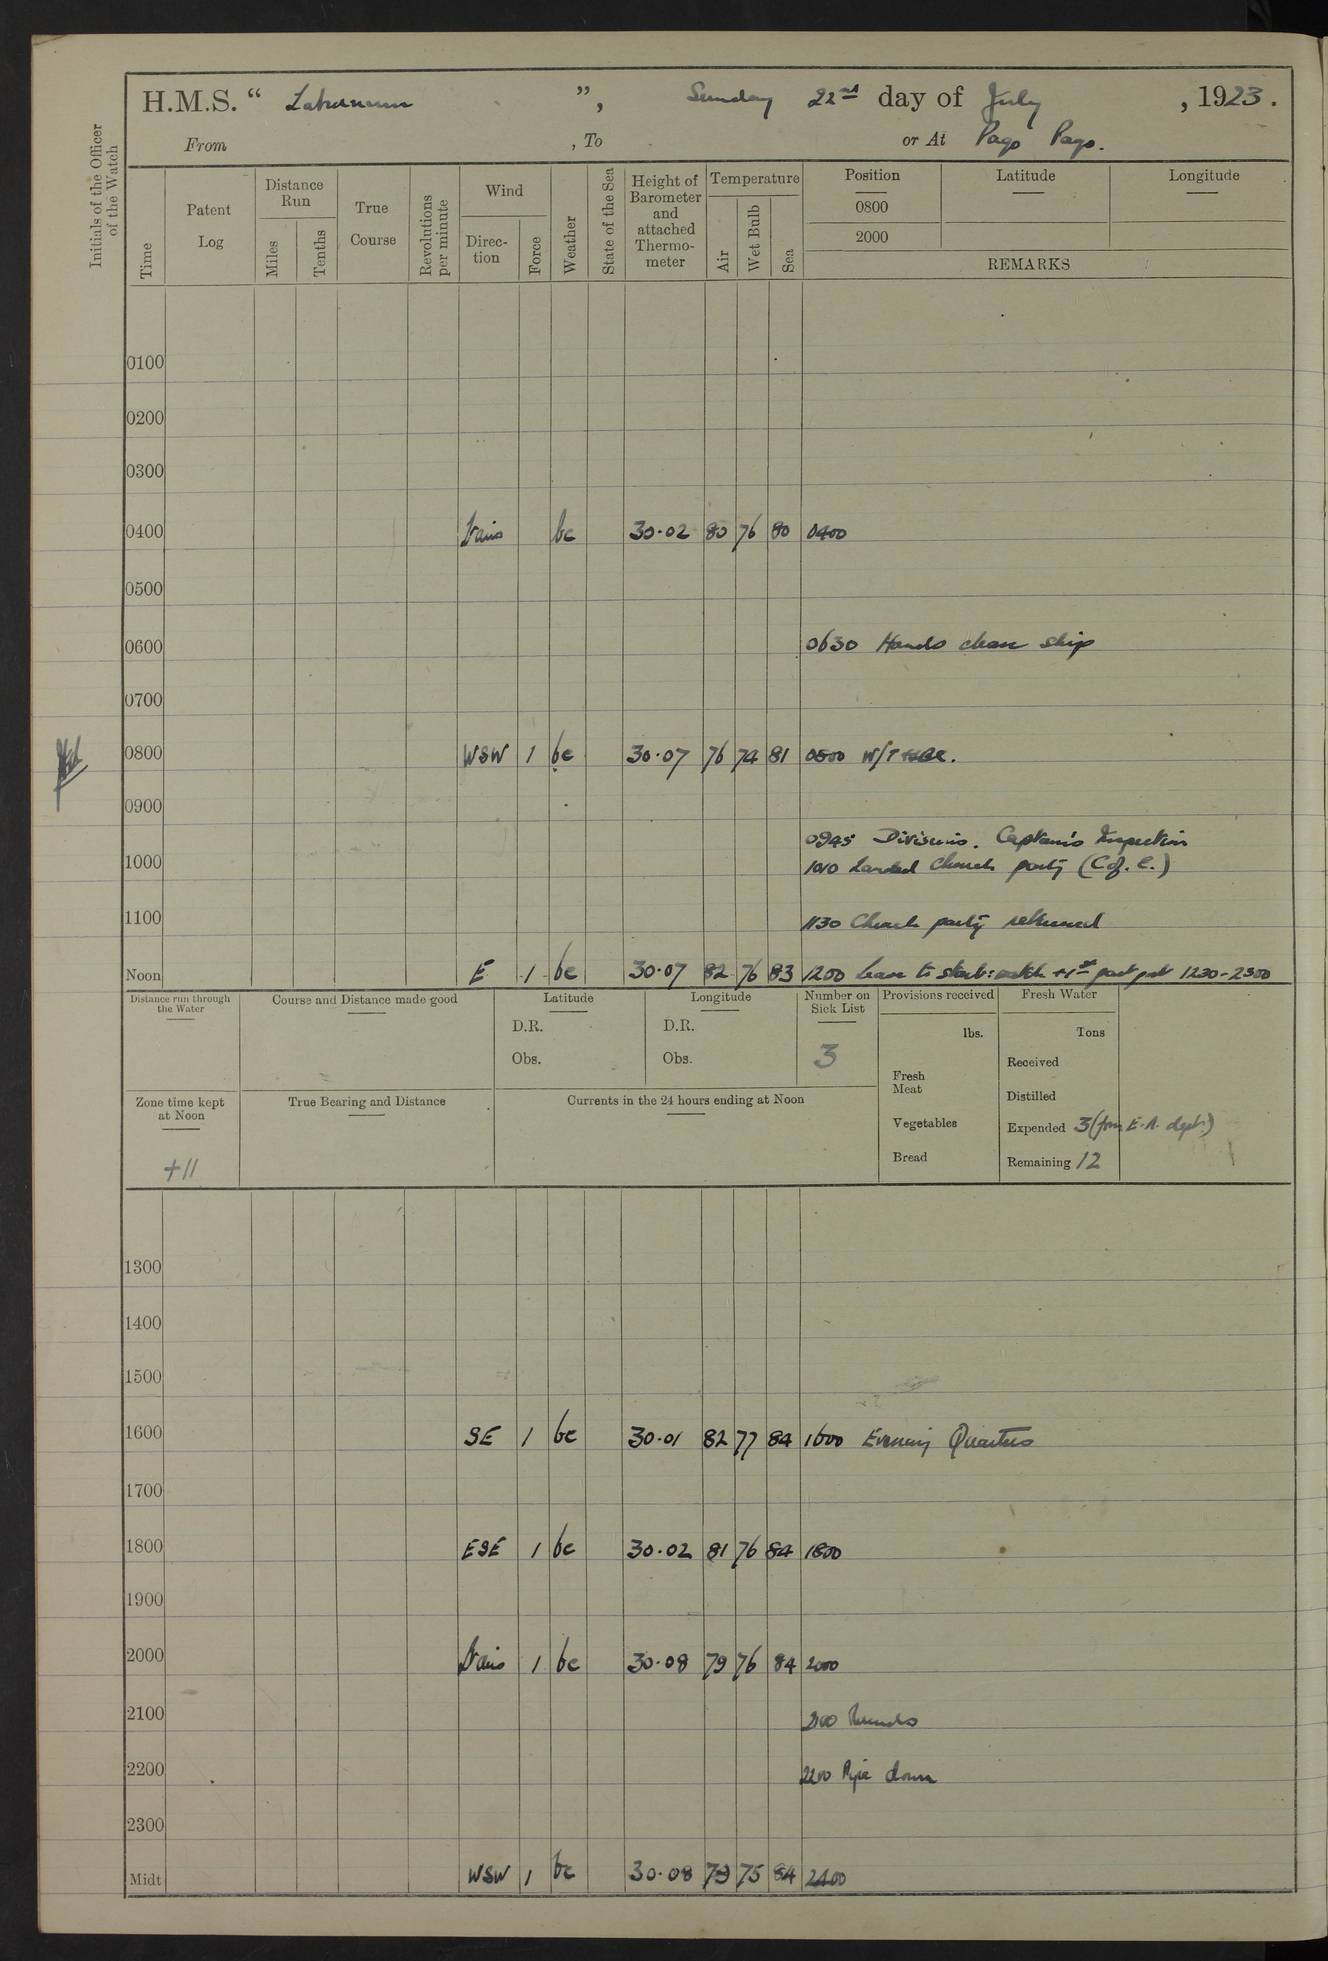 H.M.S. “ Laburnum ”, Sunday 22nd day of July , 1923.
From , To or At Pago Pago.
Initials of the Officer of the Watch
Time
Patent Log
Distance Run
Miles
Tenths
True Course
Revolutions per minute
Wind
Direc-tion
Force
Weather
State of the Sea
Height of Barometer and attached Thermo-meter
Temperature
Air
Wet Bulb
Sea
Position
0800
2000
Latitude
Longitude
REMARKS
0100
0200
0300
0400 Vairs bc 30.02 80 76 80 0400
0500
0600 0630 Hands clean ship
0700
0800 WSW 1 bc 30.07 76 74 81 0800 W/T
0900
0945 Divisions. Captain's Inspection
1000 1010 Landed Church party (C of. E.)
1100 1130 Church party returned
Noon E 1 bc 30.07 82 76 83 1200 Leave to starb: watch + 1st part port 1230-2300
Distance run through the Water
Course and Distance made good
Latitude
D.R.
Obs.
Longitude
D.R.
Obs.
Number on Sick List
3
Provisions received
lbs.
Fresh Meat
Vegetables
Bread
Fresh Water
Tons
Received
Distilled
Expended 3 (from E.R. dept.)
Remaining 12
Zone time kept at Noon
+11
True Bearing and Distance
Currents in the 24 hours ending at Noon
1300
1400
1500
1600 SE 1 bc 30.01 82 77 84 1600 Evening Quarters
1700
1800 ESE 1 bc 30.02 81 76 84 1800
1900
2000 Vairs 1 bc 30.08 79 76 84 2000
2100 2100 Rounds
2200 2200 Pipe down
2300
Midt WSW 1 bc 30.08 79 75 84 2400